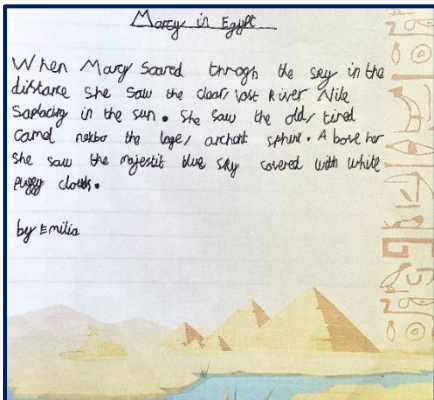 Marcy in Egypt
When Marcy Soared throgh the sey in the
distance she saw the clear, vast River Nile
in the sun. She saw the old, tired
Camel nextto the lage, archant sphinx. Above her
she saw the majestit blue sky covered with white
puggy clouds.
by Emilia